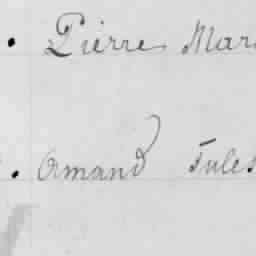 Pierre Mar
Armand Jules